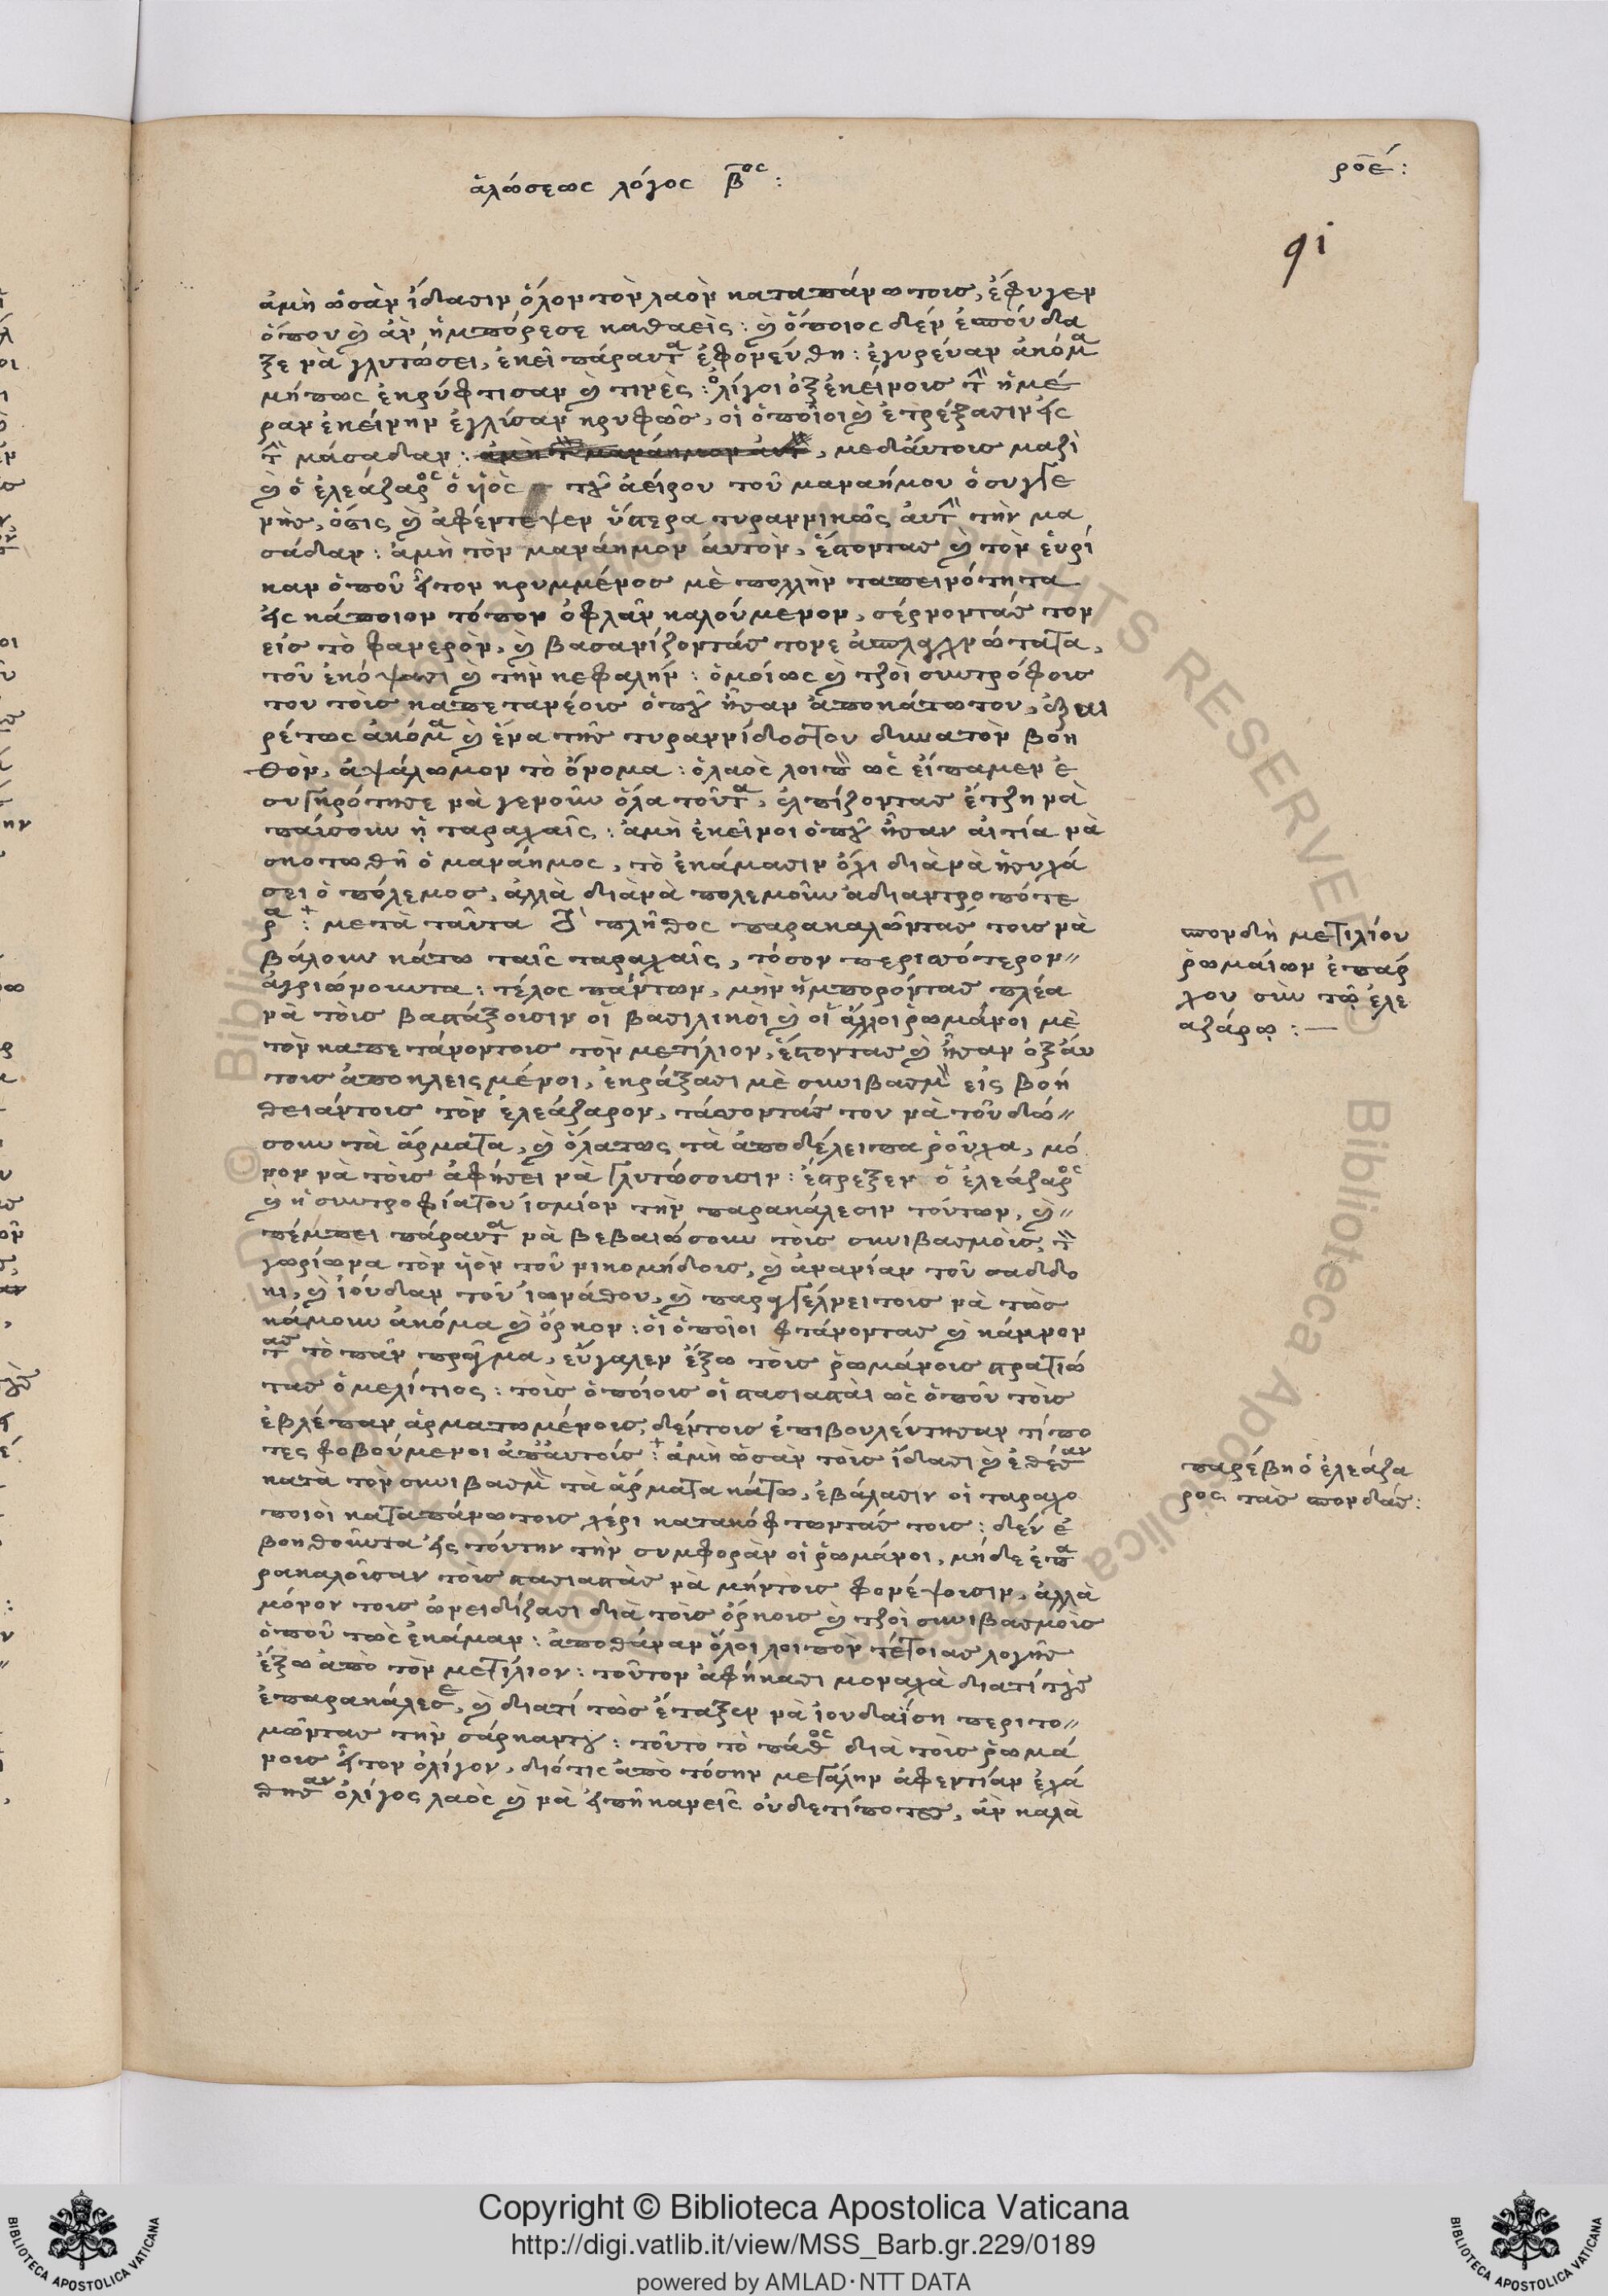 ἁλώσεως λόγος β^ος:
ροέ:
91
ἀμὴ ὡσὰν ἴδασιν ὅλον τὸν λαὸν καταπάνω τοις, ἔφυγεν
ὅπου κ ἂν ἠμπόρεσε καθαεὶς: κ ὅποιος δὲν ἐσπούδα
ξε νὰ γλυτώσει, ἐκεῖ πάραυτα ἐφονεύθη: ἐγυρεύαν ἀκόμα
μήπως ἐκρύφτισαν κ τινὲς: ὀλίγοι ὀξ ἐκείνοις τὴν ἡμέ
ραν ἐκείνην ἐγλίσαν κρυφῶς, οἱ ὁποῖοι κ ἐτρέξασιν εἰς
τὴν μάσαδαν: , μεδάυτοις μαζὶ
κ ὁ ἐλεάζαρος ὁ ὑὸς τοῦ ἀείρου τοῦ μαναήμου ὁ συγγε
νὴς, ὅστις κ ἀφέντεψεν ὕστερα τυραννικῶς αὐτὴν τὴν μα
σάδαν: ἀμὴ τὸν μανάημον ἀυτὸν, ἔστοντας κ τὸν ἑυρί
καν ὁποῦ ἦτον κρυμμένος μὲ πολλὴν ταπεινότητα
εἰς κάποιον τόπον ὀφλὰν καλούμενον, σέρνοντάς τον
εἰς τὸ φανερὸν, κ βασανίζοντάς τονε ἀπολαλλώτατα,
τοῦ ἐκόψασι κ τὴν κεφαλήν: ὁμοίως κ τζοὶ συντρόφοις
του τοὶς καπετανέοις ὁποῦ ἦσαν ἀποκάτω του, ἐξαι
ρέτως ἀκόμα κ ἕνα τῆς τυραννίδος του δυνατὸν βοη
θὸν, ἀψάλωμον τὸ ὄνομα: ὁ λαὸς λοιπὸν ὡς εἴπαμεν ἐ
συγκρότησε νὰ γενοῦν ὅλα τοῦτα, ἐλπίζοντας ἔτζη νὰ
παύσουν ᾑ ταραχαῖς: ἀμὴ ἐκεῖνοι ὁποῦ ἦσαν ἀιτία νὰ
σκοτωθῆ ὁ μανάημος, τὸ ἐκάμασιν ὄχι διὰ νὰ ἡσυχά
σει ὁ πόλεμος, ἀλλὰ διὰ νὰ πολεμοῦν ἀδιαντροπότε
ρα: μετὰ ταῦτα τὸ πλῆθος παρακαλῶντάς τοις νὰ
βάλουν κάτω ταῖς ταραχαῖς, τόσον περισσότερον
ἀγριώνουντα: τέλος πάντων, μὴν ἠμπορόντας πλέα
νὰ τοὶς βαστάξοισιν οἱ βασιλικοὶ κ οἱ ἄλλοι ῥωμάνοι μὲ
τὸν καπετάνον τοις τὸν μετίλιον, ἔστοντας κ ἦσαν ὀξ άυ
τοις ἀποκλεισμένοι, ἐκράξασι μὲ συνιβασμὸν εἰς βοή
θειάν τοις τὸν ἐλεάζαρον, τάσσοντάς του νὰ τοῦ δώ
σουν τὰ ἄρματα, κ ὅλα τως τὰ ἀποδέλειπα ῥοῦχα, μό
νον νὰ τοὶς ἀφήσει νὰ γλυτώσοισιν: ἔστρεξεν ὁ ἐλεάζαρος
κ ἡ συντροφία του ἰσμίον τὴν παρακάλεσιν τούτων, κ
πέμπει πάραυτα νὰ βεβαιώσουν τοὶς συνιβασμοὶς, τὸν
γωρίωνα τὸν ὑὸν τοῦ νικομήδοις, κ ἀνανίαν τοῦ σαδδο
κι, κ ἰούδαν τοῦ ἰωνάθου, κ παραγγέλνει τοις νὰ τῶς
κάμουν ἀκόμα κ ὅρκον: οἱ ὁποῖοι φτάνοντας κ κάμνον
τας τὸ πᾶν πρᾶγμα, εὔγαλεν ἔξω τοὶς ῥωμάνοις στρατιώ
τας ὁ μελίτιος: τοὶς ὁποίοις οἱ στασιασταὶ ὡς ὁποῦ τοὶς
ἐβλέπαν ἁρματωμένοις, δὲν τοις ἐπιβουλέυτησαν τίπο
τες φοβούμενοι ἀπ ἀυτοίς: ἀμὴ ὡσὰν τοὶς ἴδασι κ ἐθέσαν
κατὰ τὸν συνιβασμὸν τὰ ἅρματα κάτω, ἐβάλασιν οἱ ταραχο
ποιοὶ καταπάνω τοις χέρι κατακόφτωντάς τοις: δὲν ἐ
βοηθοῦντα εἰς τούτην τὴν συμφορὰν οἱ ῥωμάνοι, μήδε ἐπα
ρακαλοῖσαν τοὶς στασιαστὰς νὰ μὴν τοὶς φονέψοισιν, ἀλλὰ
μόνον τοις ὠνειδίζασι διὰ τοὶς ὅρκοις κ τζοὶ συνιβασμοὶς
ὁποῦ τῶς ἐκάμαν: ἀποθάναν ὅλοι λοιπὸν τέτοιας λογῆς
ἔξω ἀπὸ τὸν μετίλιον: τοῦτον ἀφήκασι μοναχὰ διατί τοὺς
ἐπαρακάλεσε, κ διατί τῶς ἔταξεν νὰ ἰουδαΐση περιτο
μῶντας τὴν σάρκαντου: τοῦτο τὸ πάθος διὰ τοὶς ῥωμά
νοις ἦτον ὀλίγον, διότις ἀπὸ τόσην μεγάλην ἀφεντίαν ἐχά
θησαν ὀλίγος λαὸς κ νὰ εἰπῆ κανεὶς οὐδετίποτες, ἂν καλὰ
σπονδὴ μετιλίου
ῥωμαίων ἐπάρ
χου σὺν τῷ ἐλε
αζάρῳ: —
παρέβη ὁ ἐλεάζα
ρος τὰς σπονδάς:
Copyright © Biblioteca Apostolica Vaticana
http://digi.vatlib.it/view/MSS_Barb.gr.229/0189
powered by AMLAD·NTT DATA